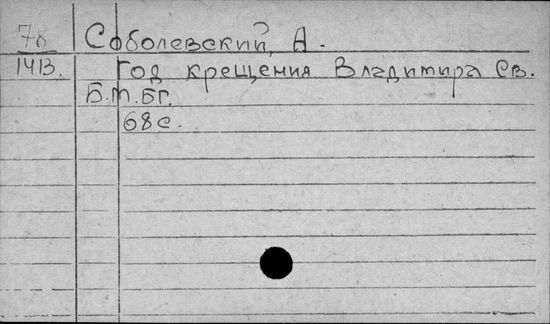 78
Соболевский, А.
1413. Год крещения Владимира Св.
Б.м.Бг.
68с.